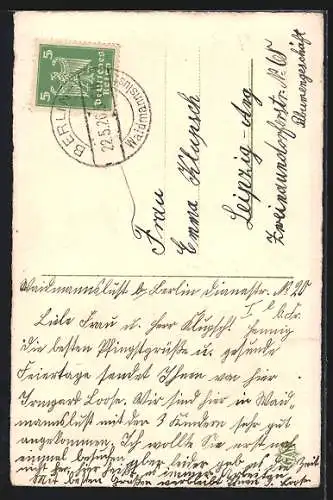 5 5
Deutsches
Reich
BERLIN
22.5.26
Waidmannslust
Frau
Emma Klupsch
Leipzig-Ang
Zweinaundorferstr. No 65
Blumengeschäft
Waidmannslust b. Berlin Dianastr. No 20
Liebe Frau u. Herr Klugsch!
die besten Pfingstgrüße u. gesunde
Feiertage sendet Ihnen von hier
Irmgard Loose. Wir sind hier in Waid-
mannslust mit den 3 Kindern sehr gut
angekommen. Ich wollte Sie erst noch
einmal besuchen aber leider die Zeit
nicht
Mit besten Grüßen